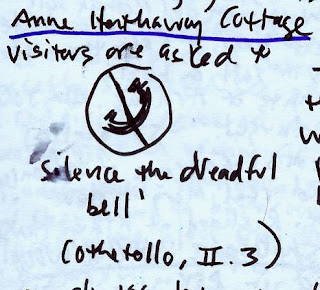 Anne Hathaway Cottage
visitors are asked to
silence the dreadful
bell'
(Othetollo, II.3)